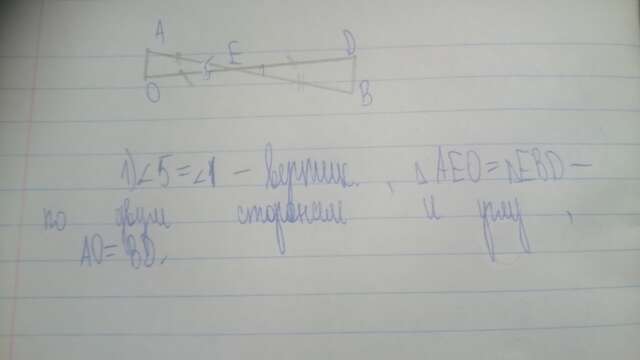 A
E
D
5
1
O
B
1) ∠5=∠1 – вертик., △AEO=△EBD –
по двум сторонам и углу,
AO=BD.